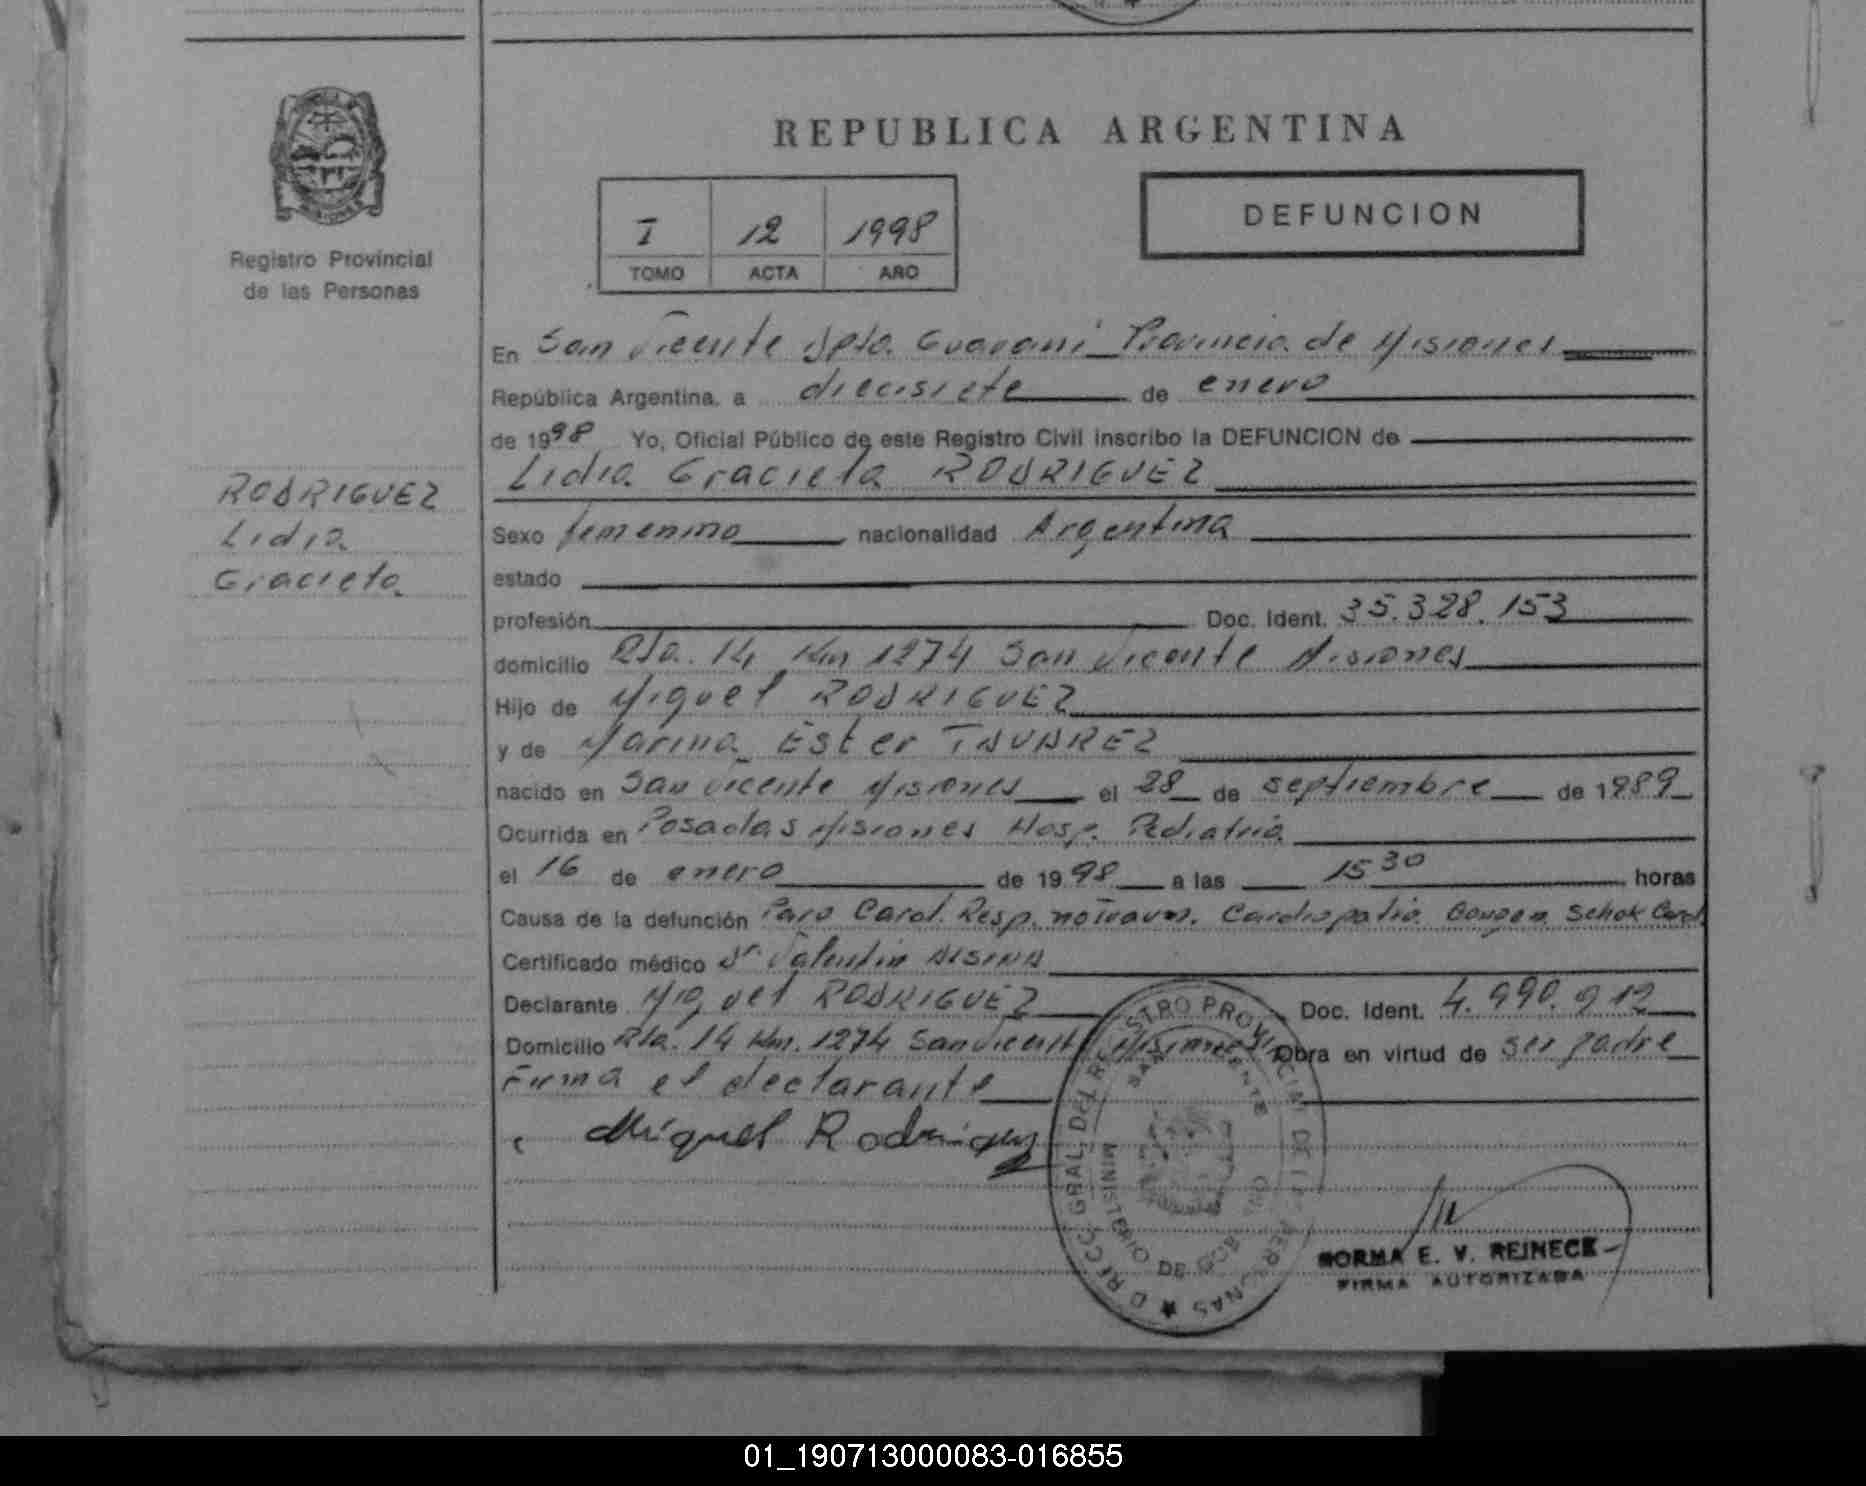 REPUBLICA ARGENTINA
DEFUNCION
I 12 1998
TOMO ACTA AÑO
MISIONES
Registro Provincial
de las Personas
RODRIGUEZ
Lidia
Graciela
En San Vicente Dpto. Guarani Provincia de Misiones
República Argentina, a diecisiete de enero
de 1998 Yo, Oficial Público de este Registro Civil inscribo la DEFUNCION de
Lidia Graciela RODRIGUEZ
Sexo femenino nacionalidad Argentina
estado
profesión Doc. Ident. 35.328.153
domicilio Rta. 14 Km 1274 San Vicente Misiones
Hijo de Miguel RODRIGUEZ
y de Marina Ester TAVAREZ
nacido en San Vicente Misiones el 28 de septiembre de 1989
Ocurrida en Posadas Misiones Hosp. Pediatria
el 16 de enero de 1998 a las 15 30 horas
Causa de la defunción Paro Card. Resp. no traum. Cardiopatia Congen. Schok Card
Certificado médico Dr. Valentin ALSINA
Declarante Miguel RODRIGUEZ Doc. Ident. 4.990.912
Domicilio Rta. 14 Km. 1274 San Vicente Misiones Obra en virtud de ser padre
Firma el declarante
Miguel Rodriguez
DIRECC. GRAL. DEL REGISTRO PROVINCIAL DE LAS PERSONAS
SAN VICENTE
MINISTERIO DE GOBIERNO
NORMA E. V. REINECK
FIRMA AUTORIZADA
01_190713000083-016855